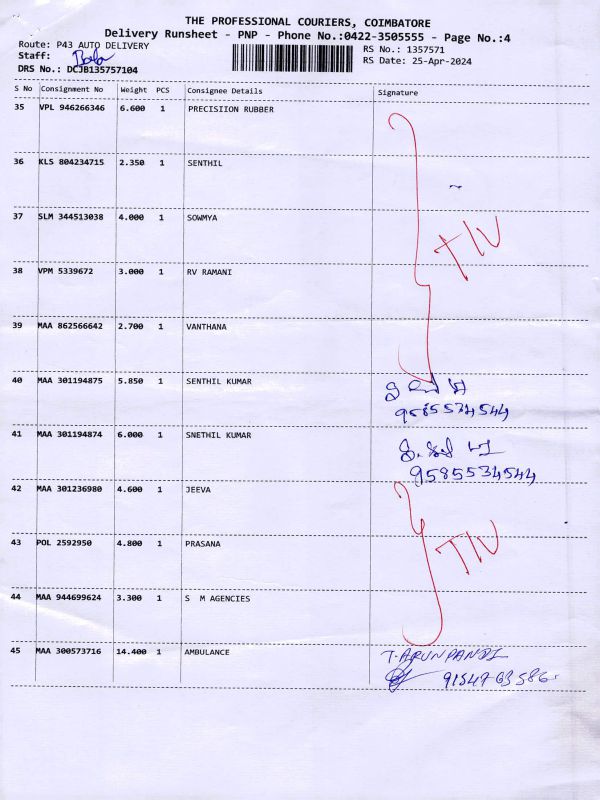 THE PROFESSIONAL COURIERS, COIMBATORE
Delivery Runsheet - PNP - Phone No.:0422-3505555 - Page No.:4
Route: P43 AUTO DELIVERY
RS No.: 1357571
Staff:
RS Date: 25-Apr-2024
DRS No.: DCJB135757104
S No Consignment No Weight PCS Consignee Details Signature
35 VPL 946266346 6.600 1 PRECISIION RUBBER
36 KLS 804234715 2.350 1 SENTHIL
37 SLM 344513038 4.000 1 SOWMYA
38 VPM 5339672 3.000 1 RV RAMANI
39 MAA 862566642 2.700 1 VANTHANA
40 MAA 301194875 5.850 1 SENTHIL KUMAR
9585534544
41 MAA 301194874 6.000 1 SNETHIL KUMAR
9585534544
42 MAA 301236980 4.600 1 JEEVA
43 POL 2592950 4.800 1 PRASANA
44 MAA 944699624 3.300 1 S M AGENCIES
45 MAA 300573716 14.400 1 AMBULANCE T. ARUNPANDI
9154763586